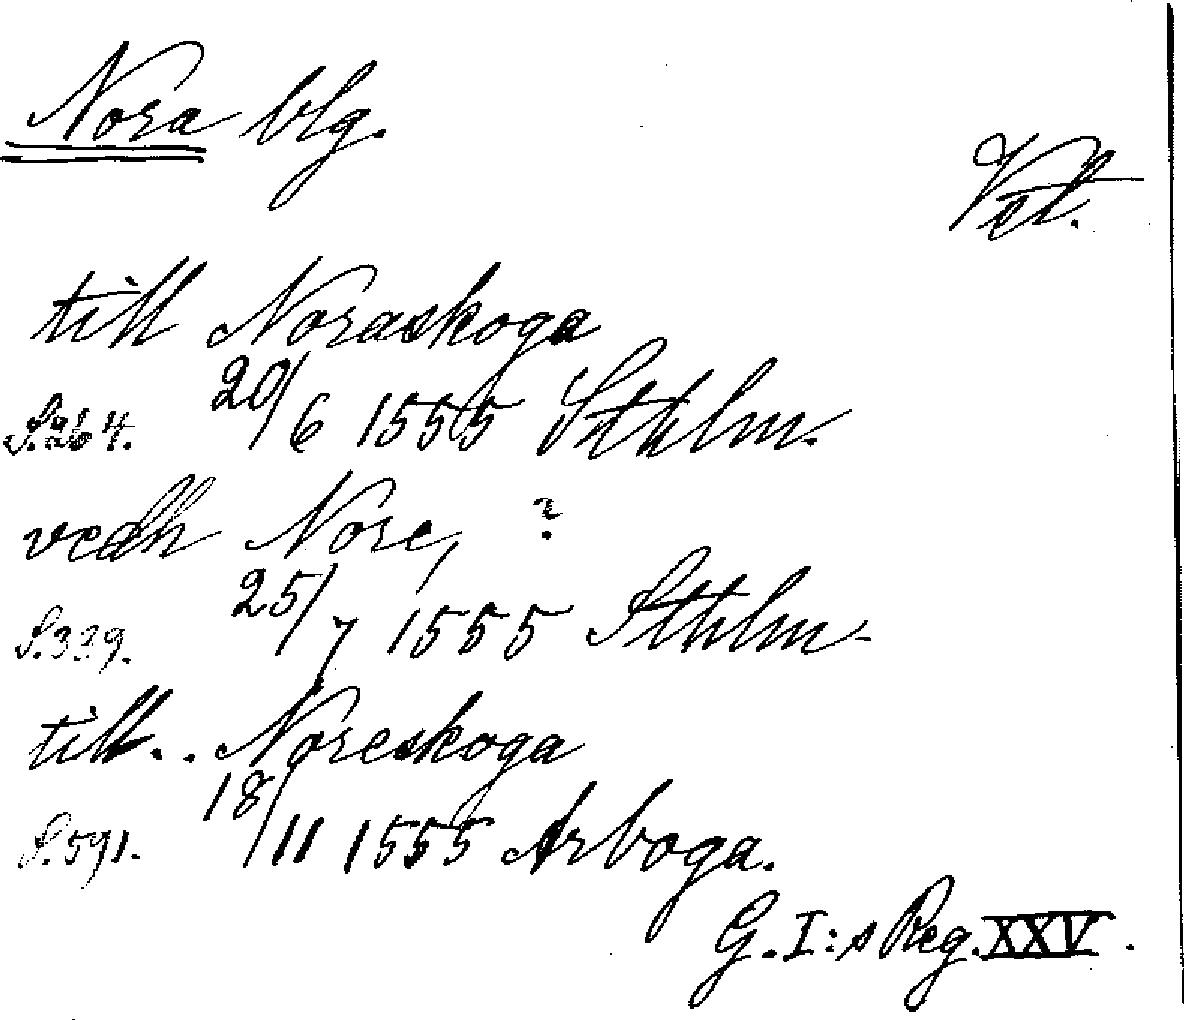 Nora blg.
Vstl.
till Noraskoga
S. 264. 20/6 1555 Sthlm.
vedh Nore, ?
S. 339. 25/7 1555 Sthlm.
till.. Noreskoga
S. 591. 18/11 1555 Arboga.
G. I:s Reg. XXV.